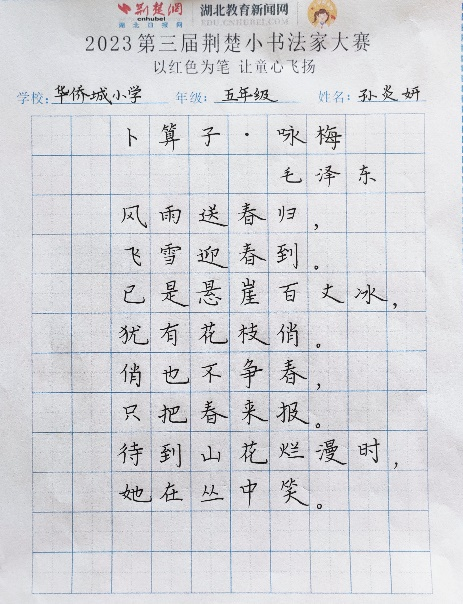 荆楚网 湖北教育新闻网
www.cnhubei.com
湖北日报网
2023第三届荆楚小书法家大赛
以红色为笔 让童心飞扬
学校: 华侨城小学 年级: 五年级 姓名: 孙炎妍
卜算子·咏梅
毛泽东
风雨送春归,
飞雪迎春到。
已是悬崖百丈冰,
犹有花枝俏。
俏也不争春,
只把春来报。
待到山花烂漫时,
她在丛中笑。